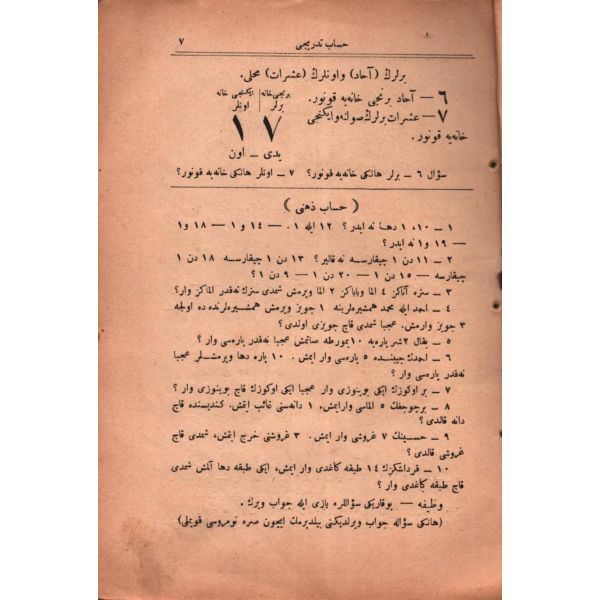 حساب تدریجی ٧
برلرك (آحاد) و اونلرك (عشرات) محلی.
٦ — آحاد برنجی خانه‌یه قونور.
٧ — عشرات برلرك صولنه و ایكنجی
خانه‌یه قونور.
برنجی خانه ایكنجی خانه
برلر اونلر
١٧
یدی — اون
سؤال ٦ — برلر هانكی خانه‌یه قونور؟ ٧ — اونلر هانكی خانه‌یه قونور؟
(حساب ذهنی)
١ — ١٠، ١ دها نه ایدر؟ ١٢ ایله ١. — ١٤ و ١ — ١٨ و ١
— ١٩ و ١ نه ایدر؟
٢ — ١١ دن ١ چیقارسه نه قالیر؟ ١٣ دن ١ چیقارسه ١٨ دن ١
چیقارسه — ١٥ دن ١ — ٢٠ دن ١ — ٩ دن ١؟
٣ — سزه آناكز ٤ الما و باباكز ٢ الما ویرمش شمدی سزك نه‌قدر الماكز وار؟
٤ — احمد ایله محمد همشیره‌لرینه ١ جویز ویركز همشیره‌لرنده ده اولجه
٣ جویز وارمش. عجبا شمدی قاچ جویزی اولدی؟
٥ — بقال ٢شر پاره‌یه ١٠ یمورطه صاتمش عجبا نه‌قدر پاره‌سی وار؟
٦ — احمدك جیبنده ٥ پاره‌سی وار ایمش. ١٠ پاره دها ویرمشلر عجبا
نه‌قدر پاره‌سی وار؟
٧ — بر اوكوزك ایكی بوینوزی وار عجبا ایكی اوكوزك قاچ بوینوزی وار؟
٨ — برچوجغك ٥ الماسی وارایمش. ١ دانه‌سنی غائب ایتمش. كندیسنده قاچ
دانه قالدی؟
٩ — حسینك ٧ غروشی وار ایمش. ٣ غروشنی خرج ایتمش، شمدی قاچ
غروشی قالدی؟
١٠ — قرداشكزك ١٤ طبقه كاغدی وار ایمش، ایكی طبقه دها آلمش شمدی
قاچ طبقه كاغدی وار؟
وظیفه — یوقاریكی سؤاللره یازی ایله جواب ویرك.
(هانكی سؤاله جواب ویرلدیكنی بیلدیرمك ایچون صره نومروسی قویملی)